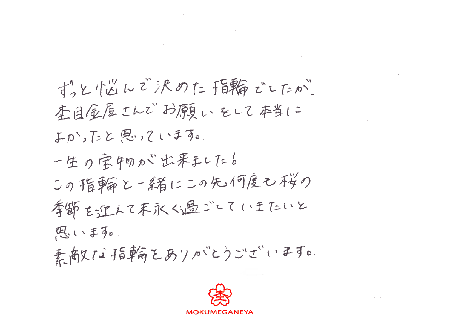 ずっと悩んで決めた指輪でしたが、
杢目金屋さんでお願いをして本当に
よかったと思っています。
一生の宝物が出来ました!
この指輪と一緒にこの先何度も桜の
季節を迎えて末永く過ごしていきたいと
思います。
素敵な指輪をありがとうございます。
MOKUMEGANEYA